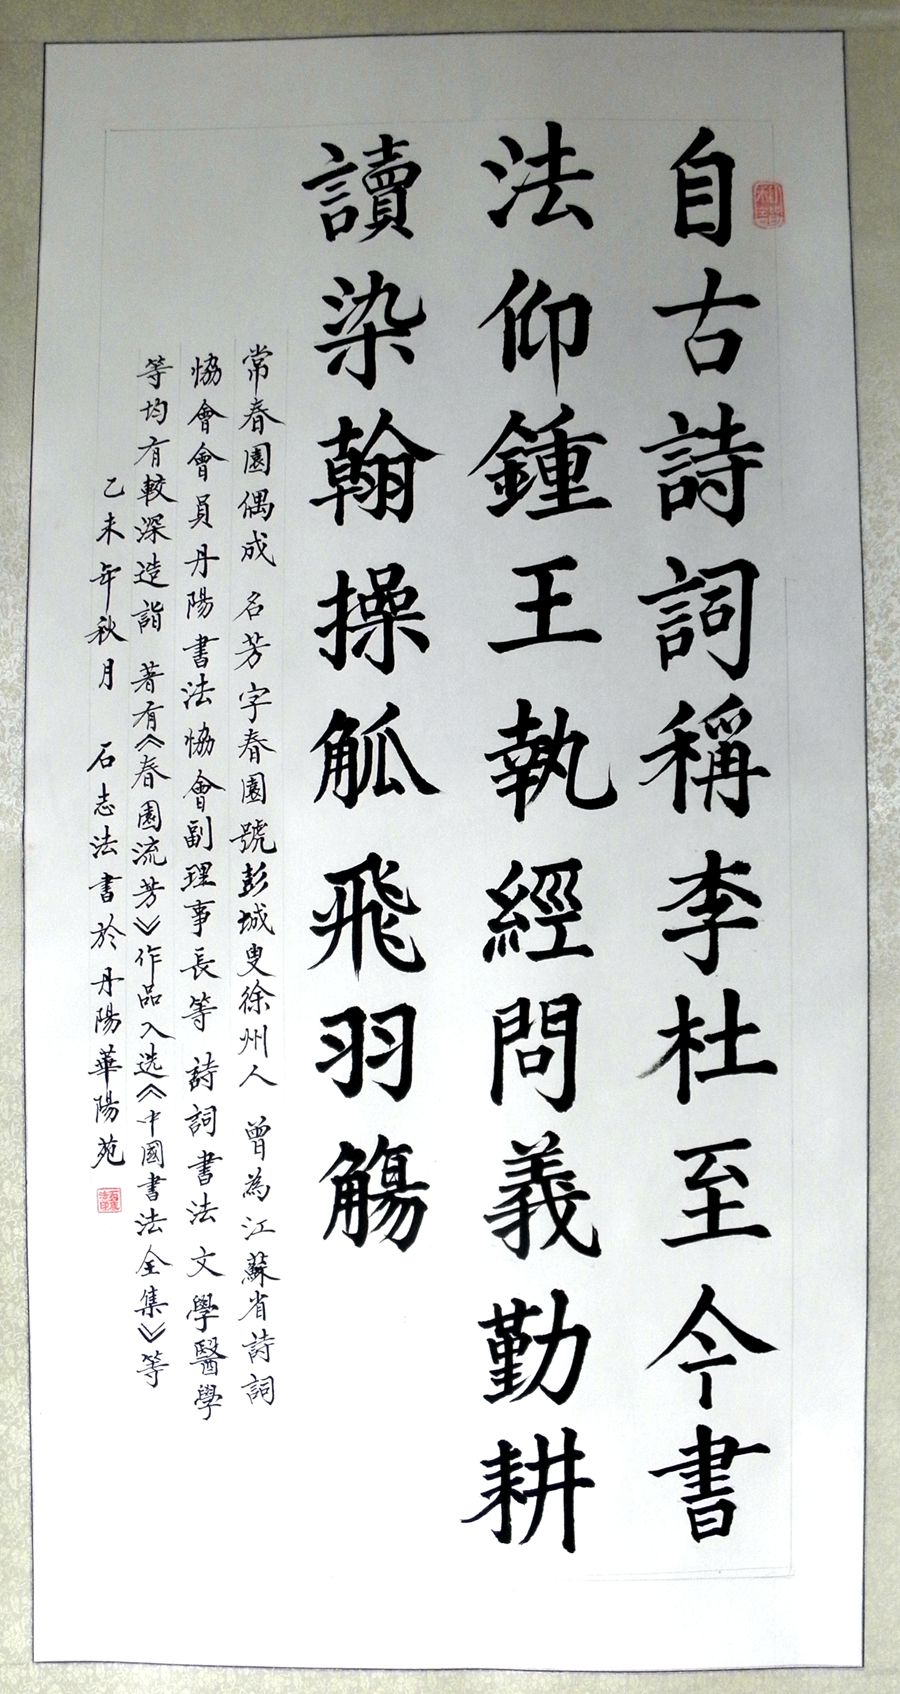 自古詩詞稱李杜至今書
法仰鍾王執經問義勤耕
讀染翰操觚飛羽觴
常春園偶成 名芳字春園號彭城叟徐州人 曾為江蘇省詩詞
協會會員丹陽書法協會副理事長等 詩詞書法文學醫學
等均有較深造詣 著有《春園流芳》作品入选《中國書法全集》等
乙未年秋月 石志法書於丹陽華陽苑